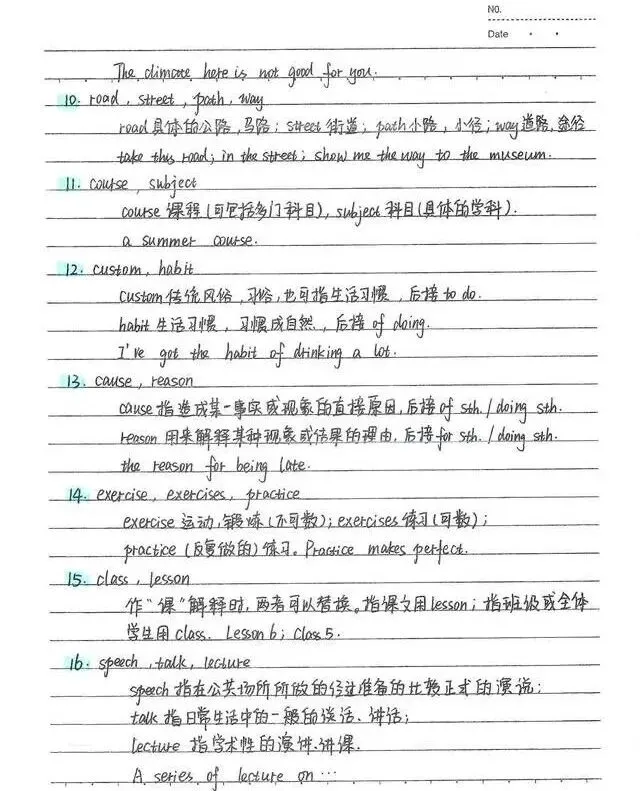 NO.
Date
The climate here is not good for you.
10. road, street, path, way
road 具体的公路,马路; street 街道; path 小路,小径; way 道路,途径
take this road; in the street; show me the way to the museum.
11. course, subject
course 课程(可包括多门科目), subject 科目(具体的学科).
a summer course.
12. custom, habit
custom 传统风俗,习俗,也可指生活习惯,后接 to do.
habit 生活习惯,习惯成自然,后接 of doing.
I've got the habit of drinking a lot.
13. cause, reason
cause 指造成某一事实或现象的直接原因,后接 of sth./doing sth.
reason 用来解释某种现象或结果的理由,后接 for sth./doing sth.
the reason for being late.
14. exercise, exercises, practice
exercise 运动,锻炼(不可数); exercises 练习(可数);
practice (反复做的)练习。Practice makes perfect.
15. class, lesson
作“课”解释时,两者可以替换。指课文用 lesson; 指班级或全体
学生用 class. Lesson 6; Class 5.
16. speech, talk, lecture
speech 指在公共场所所做的经过准备的比较正式的演说;
talk 指日常生活中的一般的谈话、讲话;
lecture 指学术性的演讲、讲课.
A series of lecture on …